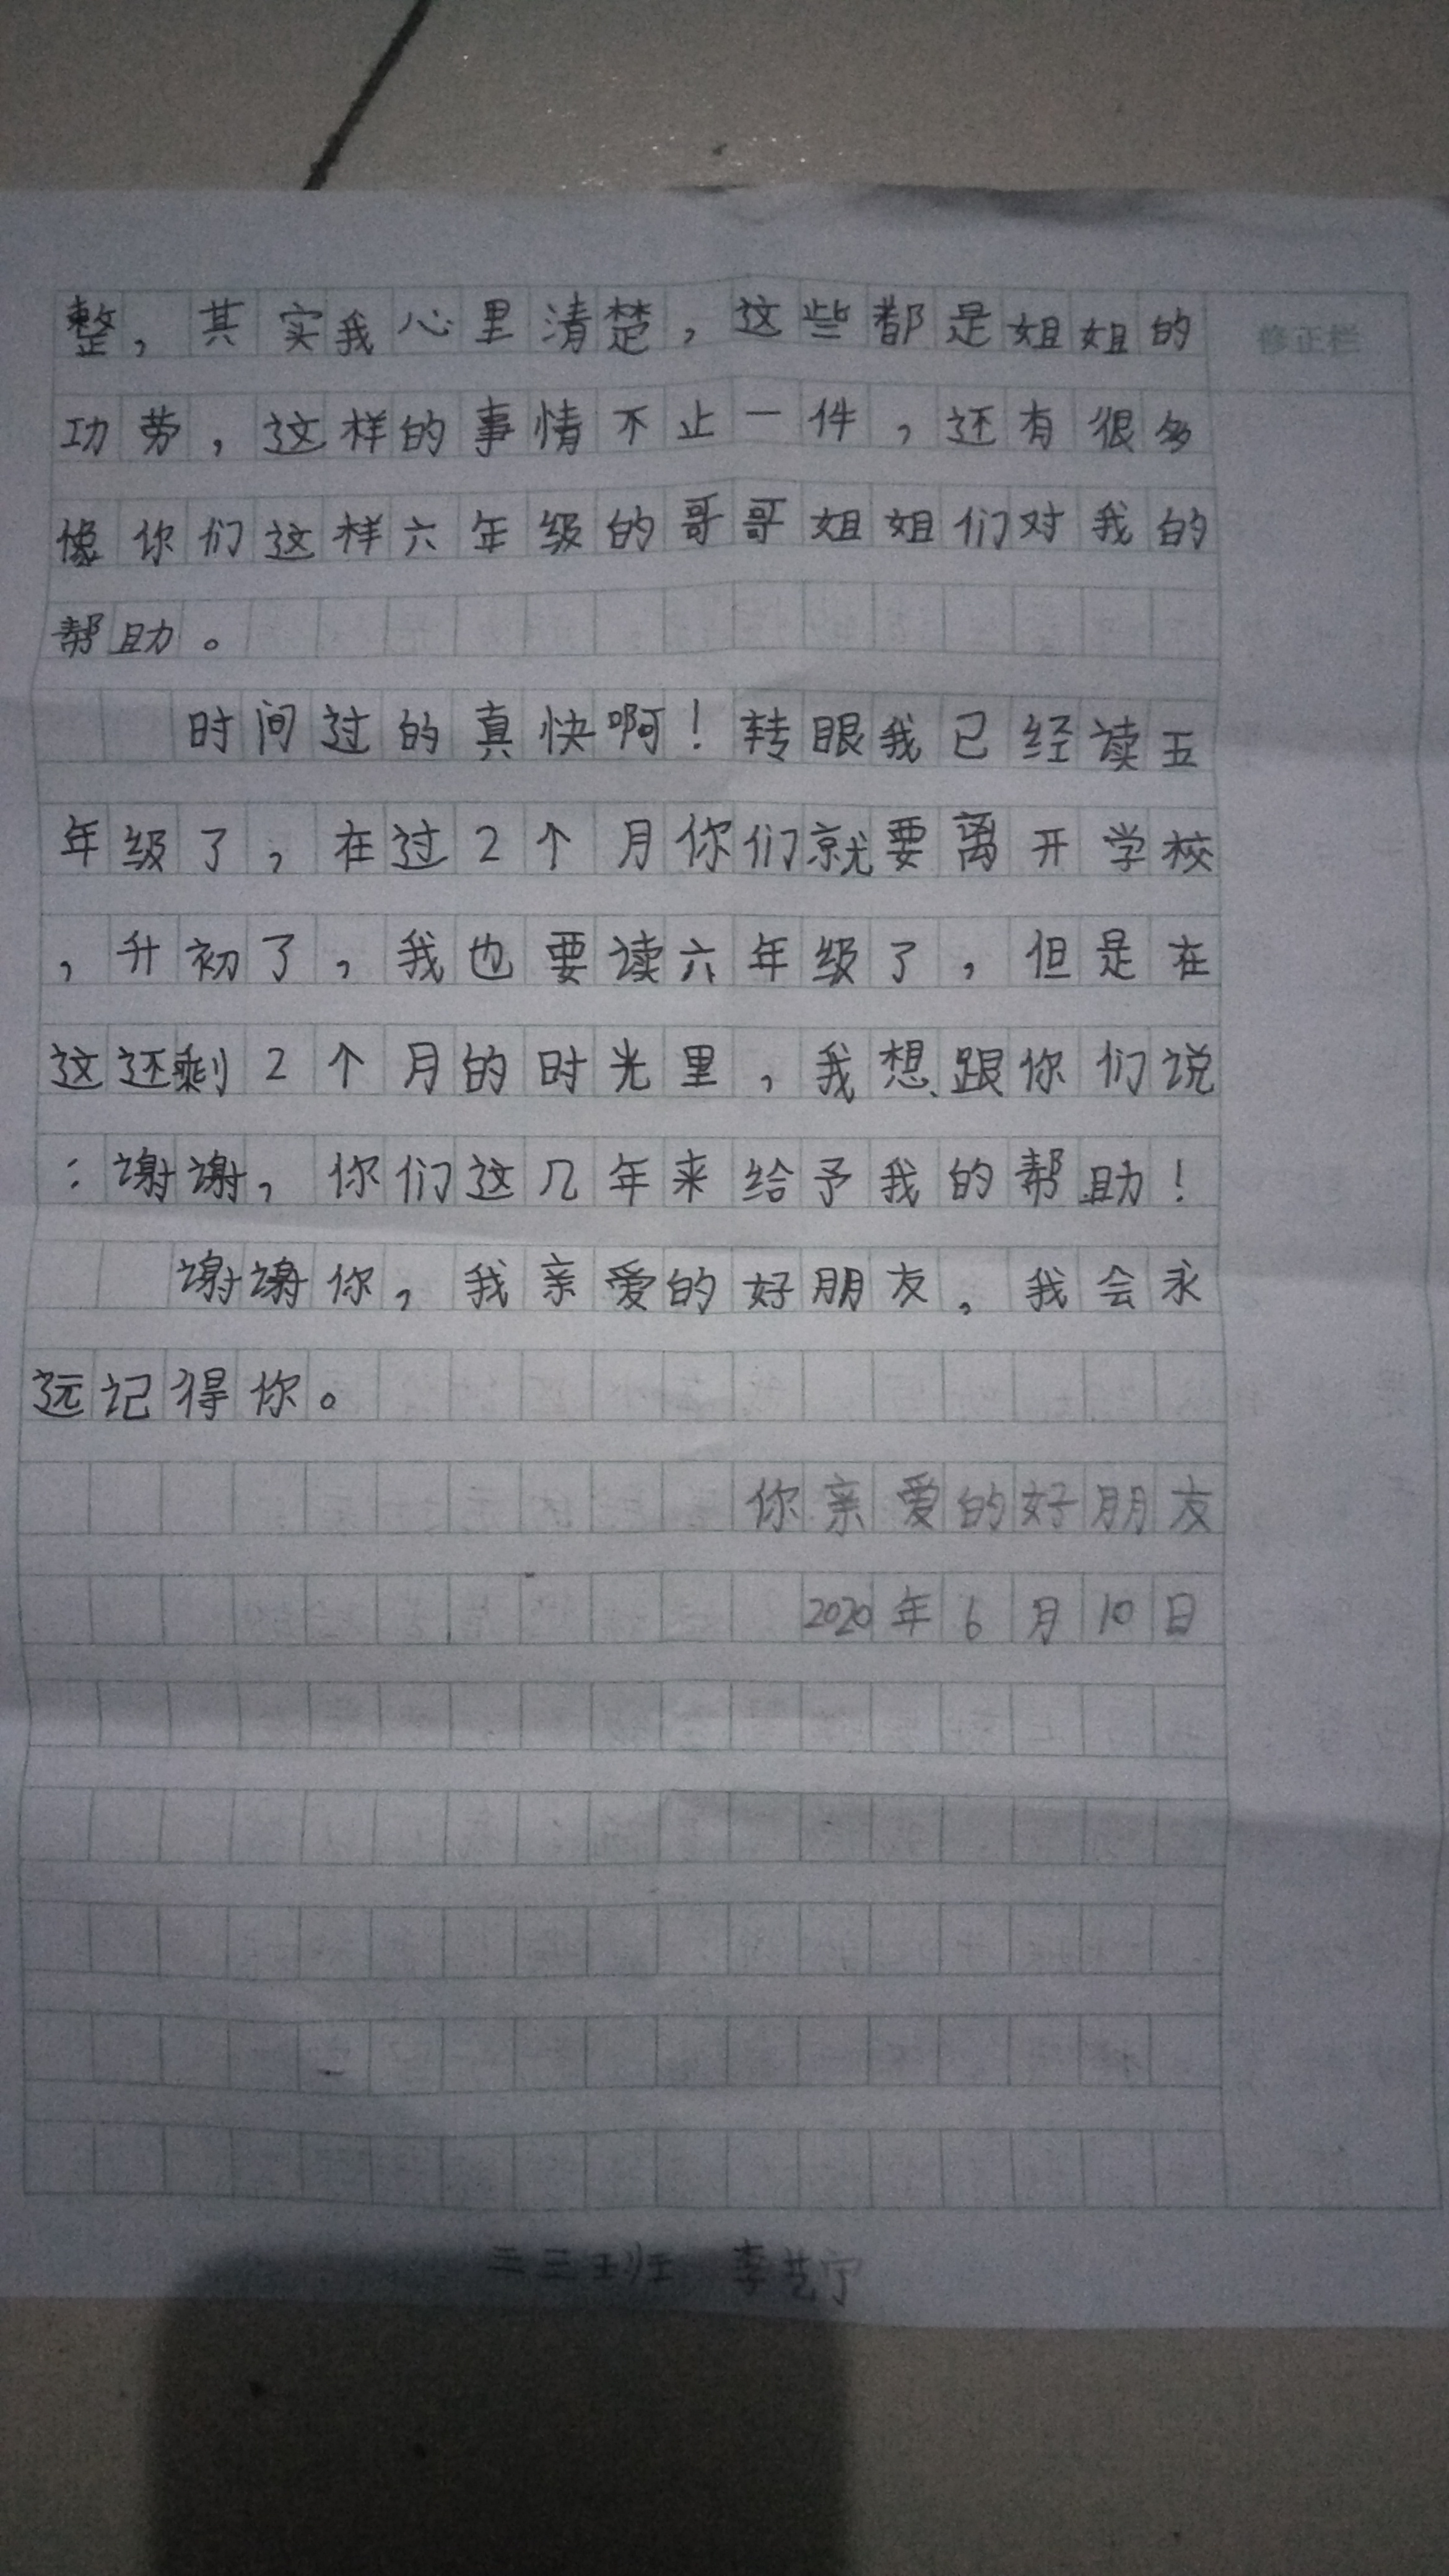 整，其实我心里清楚，这些都是姐姐的
修正栏
功劳，这样的事情不止一件，还有很多
像你们这样六年级的哥哥姐姐们对我的
帮助。
时间过的真快啊！转眼我已经读五
年级了，在过2个月你们就要离开学校
，升初了，我也要读六年级了，但是在
这还剩2个月的时光里，我想跟你们说
：谢谢，你们这几年来给予我的帮助！
谢谢你，我亲爱的好朋友，我会永
远记得你。
你亲爱的好朋友
2020年6月10日
二三班 李艺宁